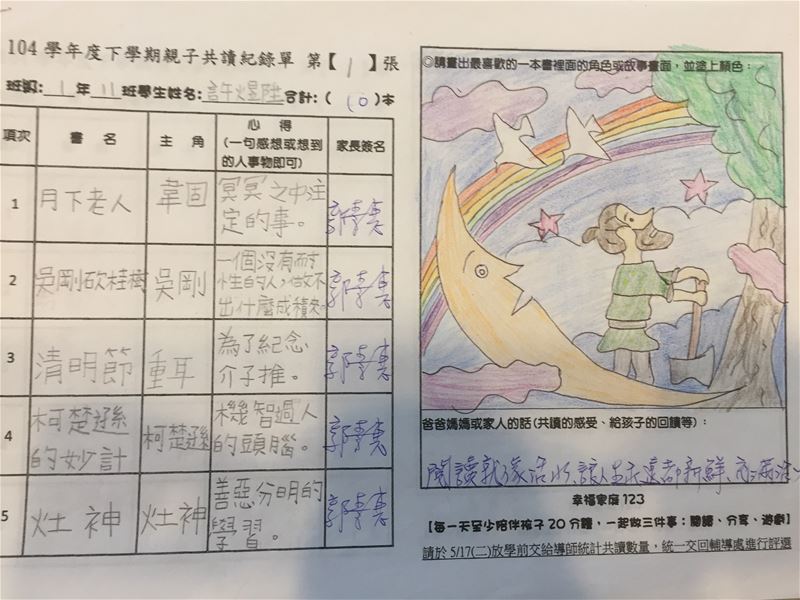 104 學年度下學期親子共讀紀錄單 第【1】張
班級:1年11班學生姓名:許煋陞 合計:(10)本
項次 書 名 主 角 心 得 家長簽名
(一句感想或想到
的人事物即可)
1 月下老人 韋固 冥冥之中注
定的事。
2 吳剛砍桂樹 吳剛 一個沒有耐
性的人,做不
出什麼成積
3 清明節 重耳 為了紀念
介子推。
4 柯楚遜 柯楚遜 機智過人
的妙計 的頭腦。
5 灶神 灶神 善惡分明的
學習。
◎請畫出最喜歡的一本書裡面的角色或故事畫面,並塗上顏色:
爸爸媽媽或家人的話(共讀的感受、給孩子的回饋等):
閱讀就像活水,讓人生永遠都新鮮
幸福家庭 123
【每一天至少陪伴孩子 20 分鐘,一起做三件事:閱讀、分享、遊戲】
請於 5/17(二)放學前交給導師統計共讀數量,統一交回輔導處進行評選